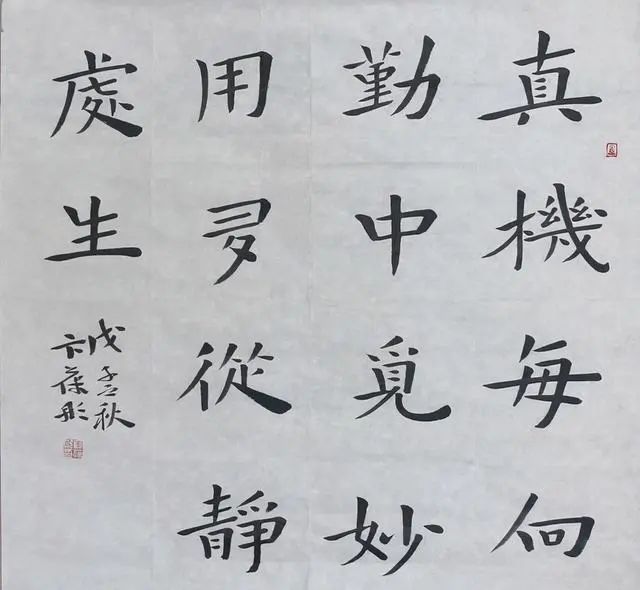 真機每向
勤中覓妙
用夛從靜
處生
戊子秋
卞葆